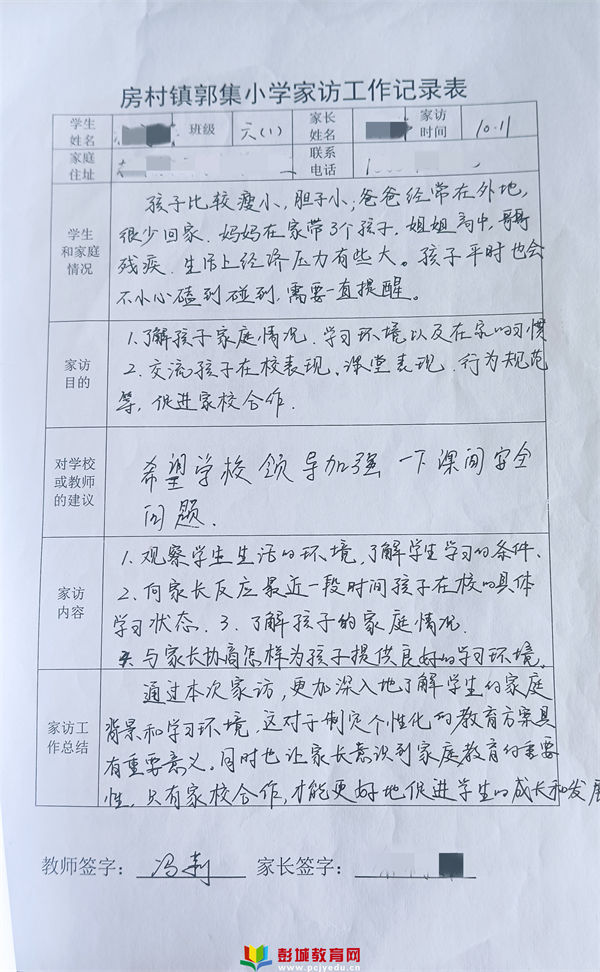 房村镇郭集小学家访工作记录表
学生姓名 班级 六(1) 家长姓名 家访时间 10.11
家庭住址 联系电话
学生和家庭情况
孩子比较瘦小,胆子小,爸爸经常在外地,
很少回家.妈妈在家带了个孩子,姐姐高中,哥哥
残疾.生活上经济压力有些大。孩子平时也会
不小心磕到碰到,需要一直提醒。
家访目的
1.了解孩子家庭情况.学习环境以及在家的习惯
2.交流孩子在校表现、课堂表现.行为规范
等,促进家校合作.
对学校或教师的建议
希望学校领导加强一下课间安全
问题.
家访内容
1.观察学生生活的环境,了解学生学习的条件、
2.向家长反应最近一段时间孩子在校的具体
学习状态.3.了解孩子的家庭情况.
与家长协商怎样为孩子提供良好的学习环境.
家访工作总结
通过本次家访,更加深入地了解学生的家庭
背景和学习环境,这对于制定个性化的教育方案具
有重要意义。同时也让家长意识到家庭教育的重要
性,只有家校合作,才能更好地促进学生的成长和发展
教师签字: 冯莉 家长签字:
彭城教育网
www.pcjyedu.cn